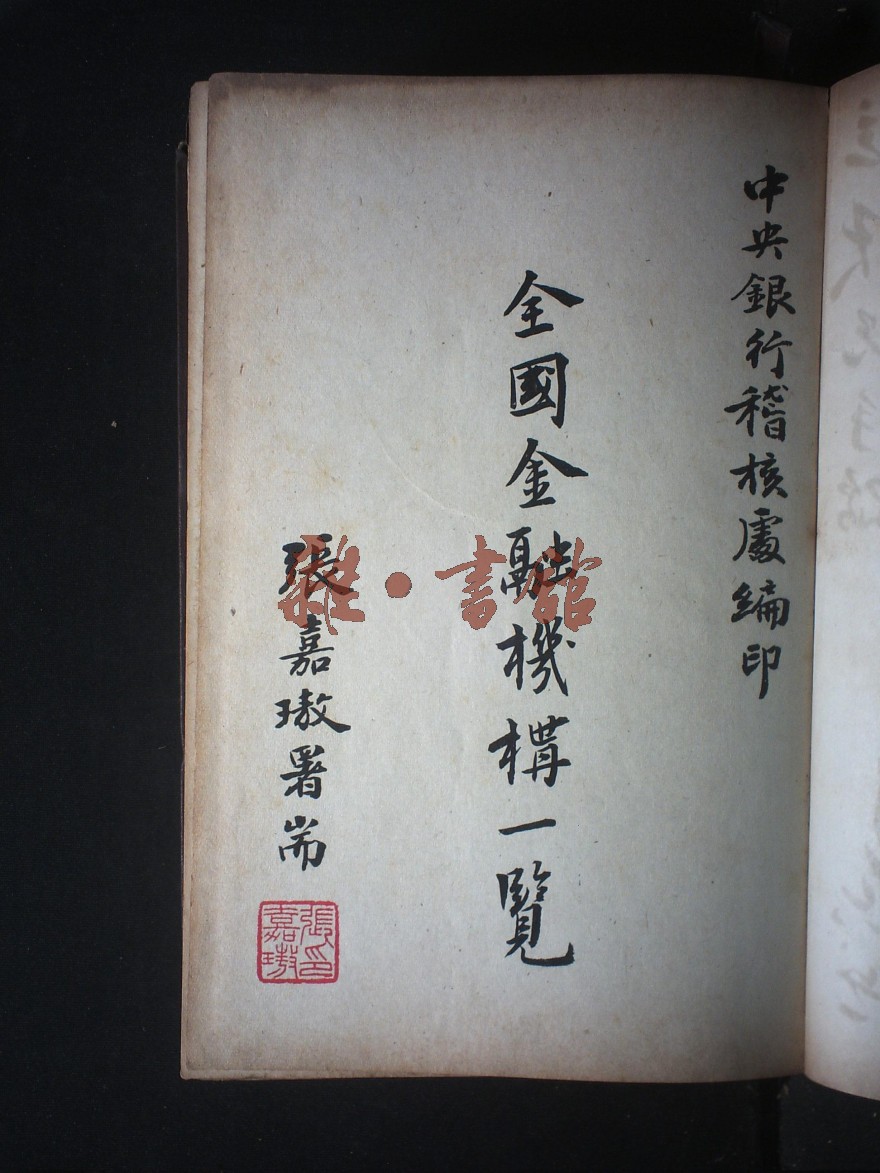 中央銀行稽核處編印
全國金融機構一覽
張嘉璈署耑
張嘉璈印
雜·書館